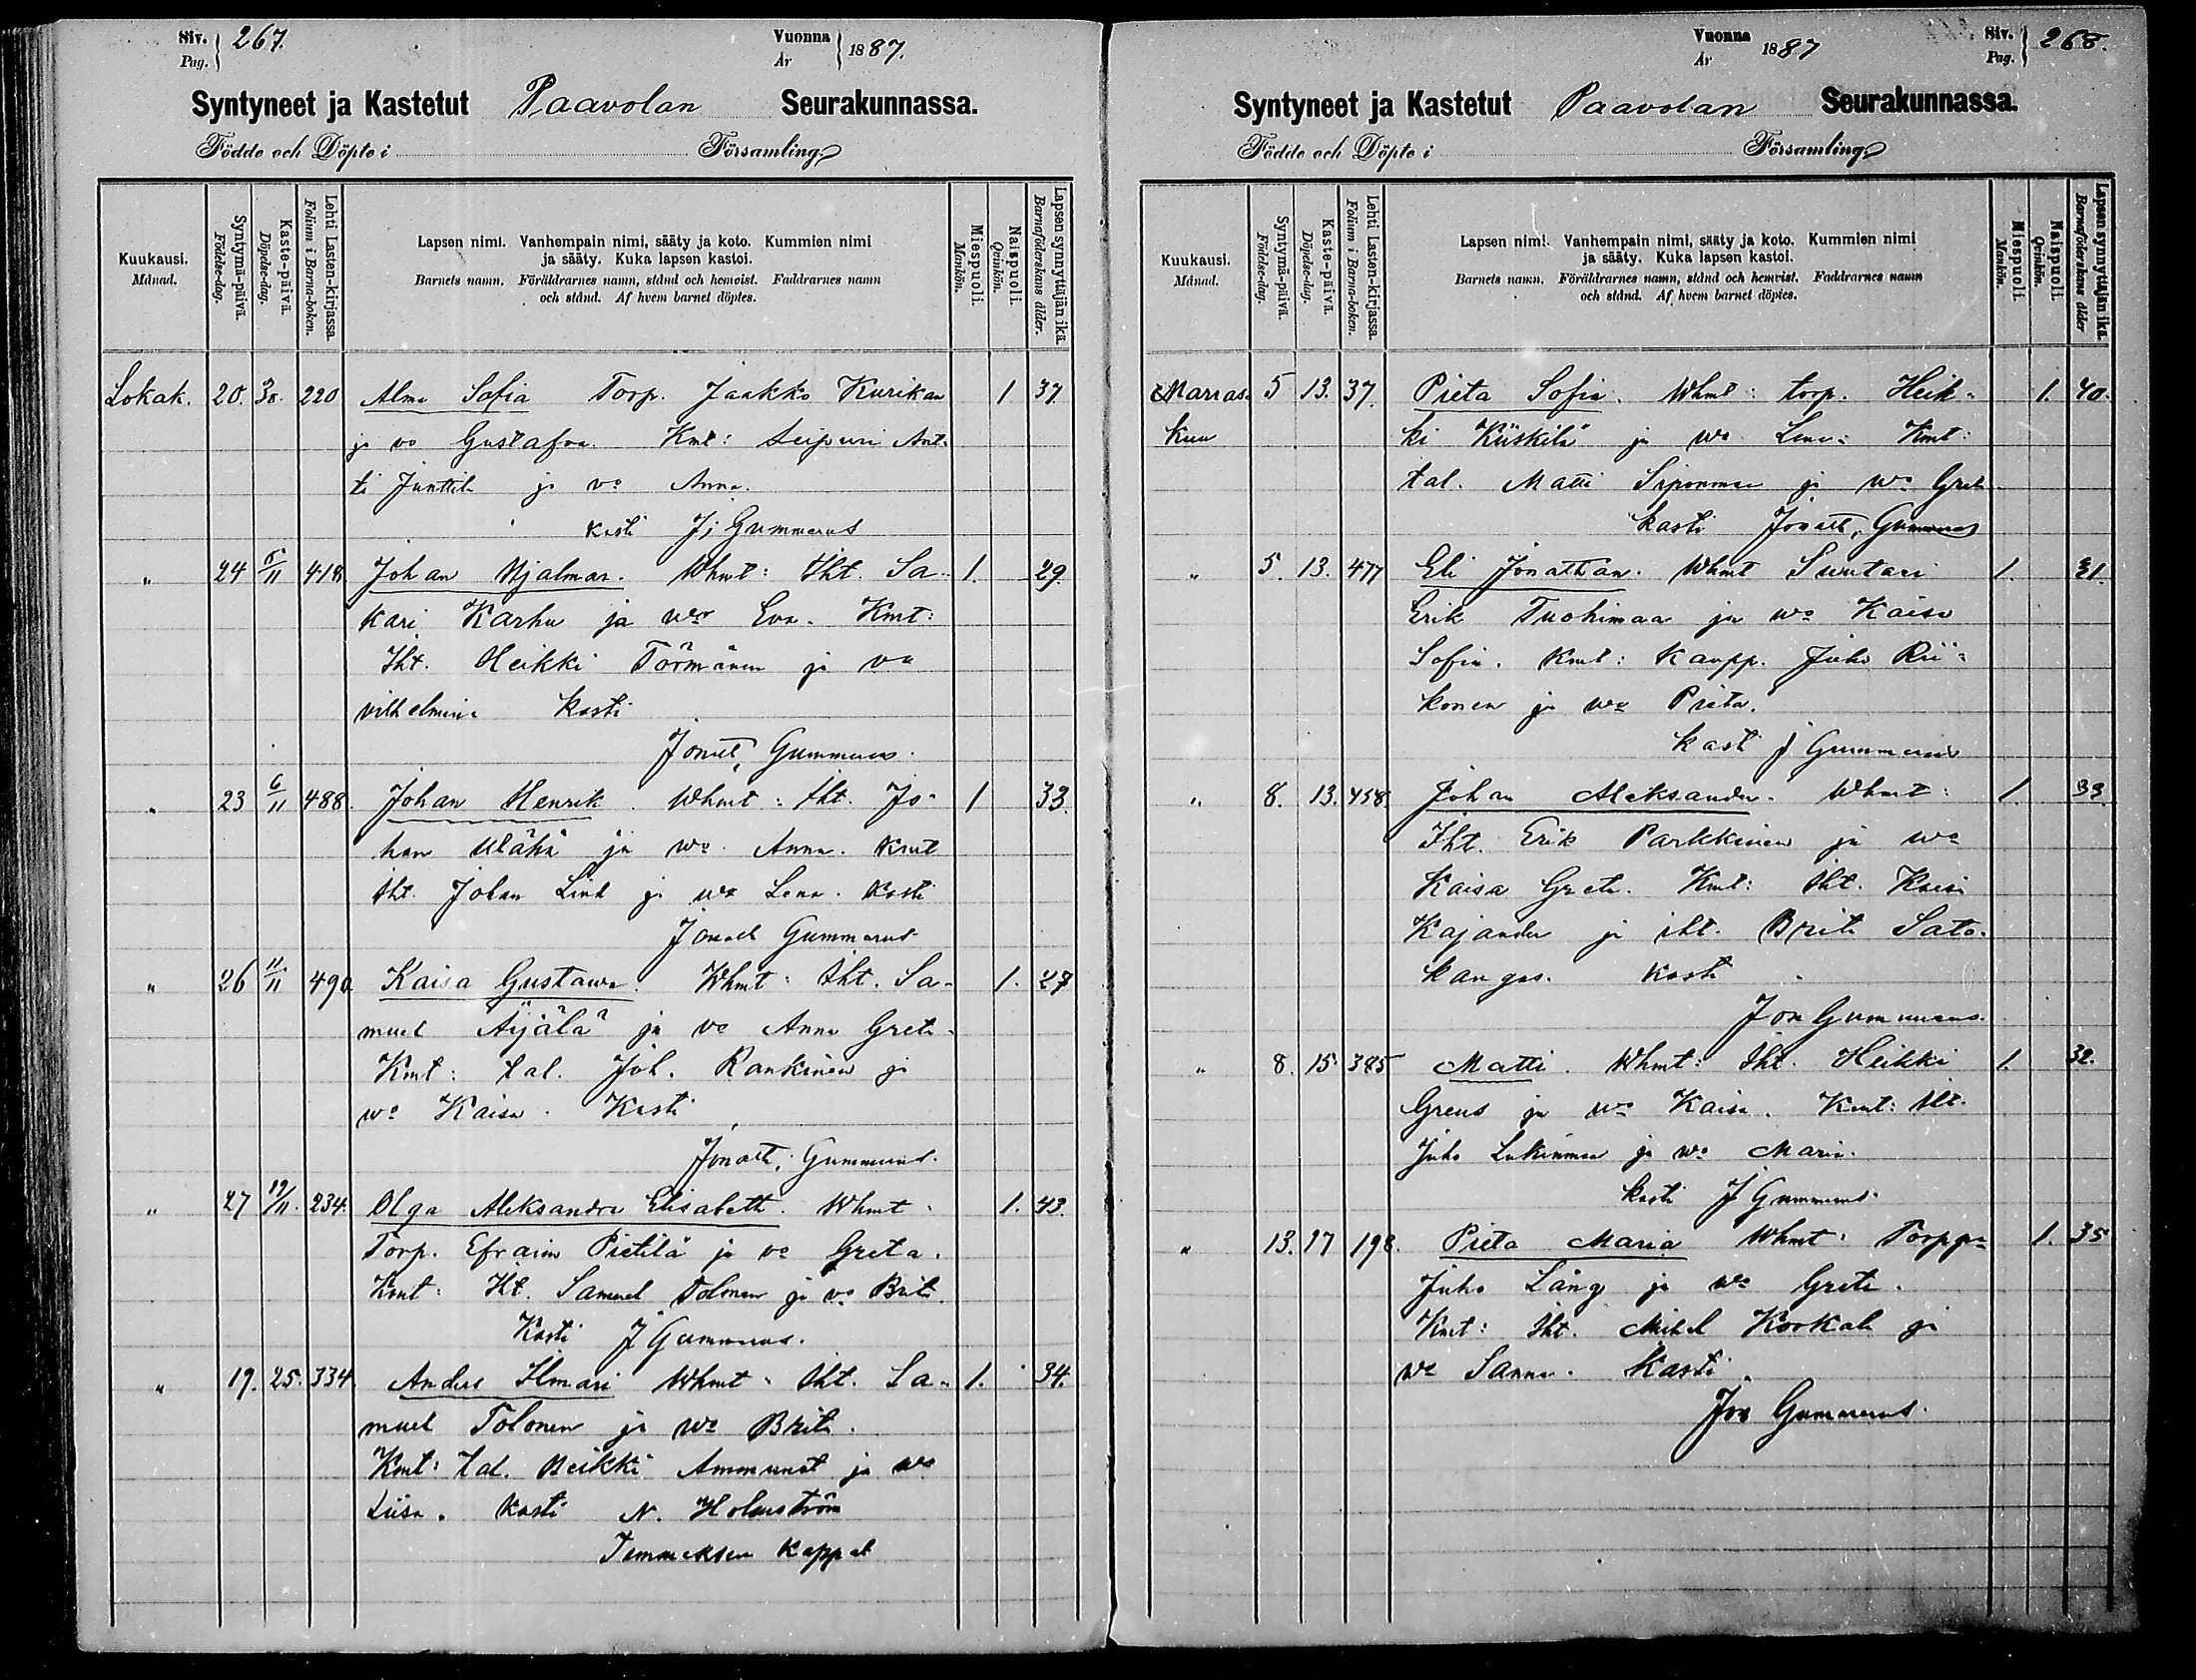 Siv. 267. Vuonna 1887.
Pag. År
Syntyneet ja Kastetut Paavolan Seurakunnassa.
Födde och Döpte i Församling.
Kuukausi. Månad.
Syntymä-päivä. Födelse-dag.
Kaste-päivä. Döpelse-dag.
Lehti Lasten-kirjassa. Folium i Barna-boken.
Lapsen nimi. Vanhempain nimi, sääty ja koto. Kummien nimi
ja sääty. Kuka lapsen kastoi.
Barnets namn. Föräldrarnes namn, stånd och hemvist. Faddrarnes namn
och stånd. Af hvem barnet döptes.
Miespuoli. Mankön.
Naispuoli. Qvinkön.
Lapsen synnyttäjän ikä. Barnaföderskans ålder.
Lokak. 20. 30. 220 Alma Sofia Torp. Jaakko Kurikan 1 37.
ja vo Gustafva. Kmt: Seipuri Ant-
ti Junttila ja vo Anna.
kasti J; Gummerus
" 24 5/11 418 Johan Hjalmar. Whmt: Iht. Sa- 1. 29.
kari Karhu ja wo Eva. Kmt:
Iht. Heikki Törmänen ja va
vilhelmina kasti
Jonat, Gummerus.
" 23 6/11 488. Johan Henrik. Whmt: Iht. Jo- 1 33.
han Ulähä ja wo Anna. Kmt
Iht. Johan Lind ja wo Lena. Kasti
Jonath Gummerus
" 26 11/11 490 Kaisa Gustawa. Whmt: Iht. Sa- 1. 27
muel Äijälä ja vo Anna Greta.
Kmt: tal. Joh. Rankinen ja
wo Kaisa. Kasti
Jonath, Gummerus.
" 27 19/11. 234. Olga Aleksandra Elisabeth. Whmt: 1. 43.
Torp. Efraim Pietilä ja vo Greta.
Kmt: Iht. Samuel Tolonen ja vo Brita.
Kasti J Gummerus.
" 19. 25. 334. Anders Ilmari Whmt: Iht. Sa- 1. 34.
muel Tolonen ja wo Brita.
Kmt: tal. Heikki Ammunet ja wo
Liisa. kasti N. Holmström
Temmeksen kappal
Vuonna 1887 Siv. 268.
År Pag.
Syntyneet ja Kastetut Paavolan Seurakunnassa.
Födde och Döpte i Församling.
Kuukausi. Månad.
Syntymä-päivä. Födelse-dag.
Kaste-päivä. Döpelse-dag.
Lehti Lasten-kirjassa. Folium i Barna-boken.
Lapsen nimi. Vanhempain nimi, sääty ja koto. Kummien nimi
ja sääty. Kuka lapsen kastoi.
Barnets namn. Föräldrarnes namn, stånd och hemvist. Faddrarnes namn
och stånd. Af hvem barnet döptes.
Miespuoli. Mankön.
Naispuoli. Qvinkön.
Lapsen synnyttäjän ikä. Barnaföderskans ålder
Marras- 5 13. 37. Pieta Sofia. Whmt: torp. Heik- 1. 40.
kuu ki Kiiskilä ja wo Lena: Kmt:
tal. Matti Siponmaa ja wo Greta
kasti Jonath, Gummerus
" 5. 13. 477 Eli Jonathan. Whmt Suutari 1. 31.
Erik Tuohimaa ja wo Kaisa
Sofia. Kmt: Kaupp. Juho Rii-
konen ja wo Prita.
kasti J Gummerus
" 8. 13. 458. Johan Aleksander. Whmt: 1. 33.
Iht. Erik Parkkinen ja wo
Kaisa Greta. Kmt: Iht. Kaisa
Kajander ja iht. Brita Sato-
kangas. kasti
Jon Gummerus.
" 8. 15. 385 Matti. Whmt: Iht. Heikki 1. 32.
Greus ja wo Kaisa. Kmt: Iht.
Juho Lukinmaa ja wo Maria.
kasti J Gummerus.
" 13. 17 198. Pieta Maria Whmt: Torpp: 1. 35
Juho Lång ja wo Greta.
Kmt: Iht. Mihel Korkala ja
wo Sanna. Kasti
Jon Gummerus.